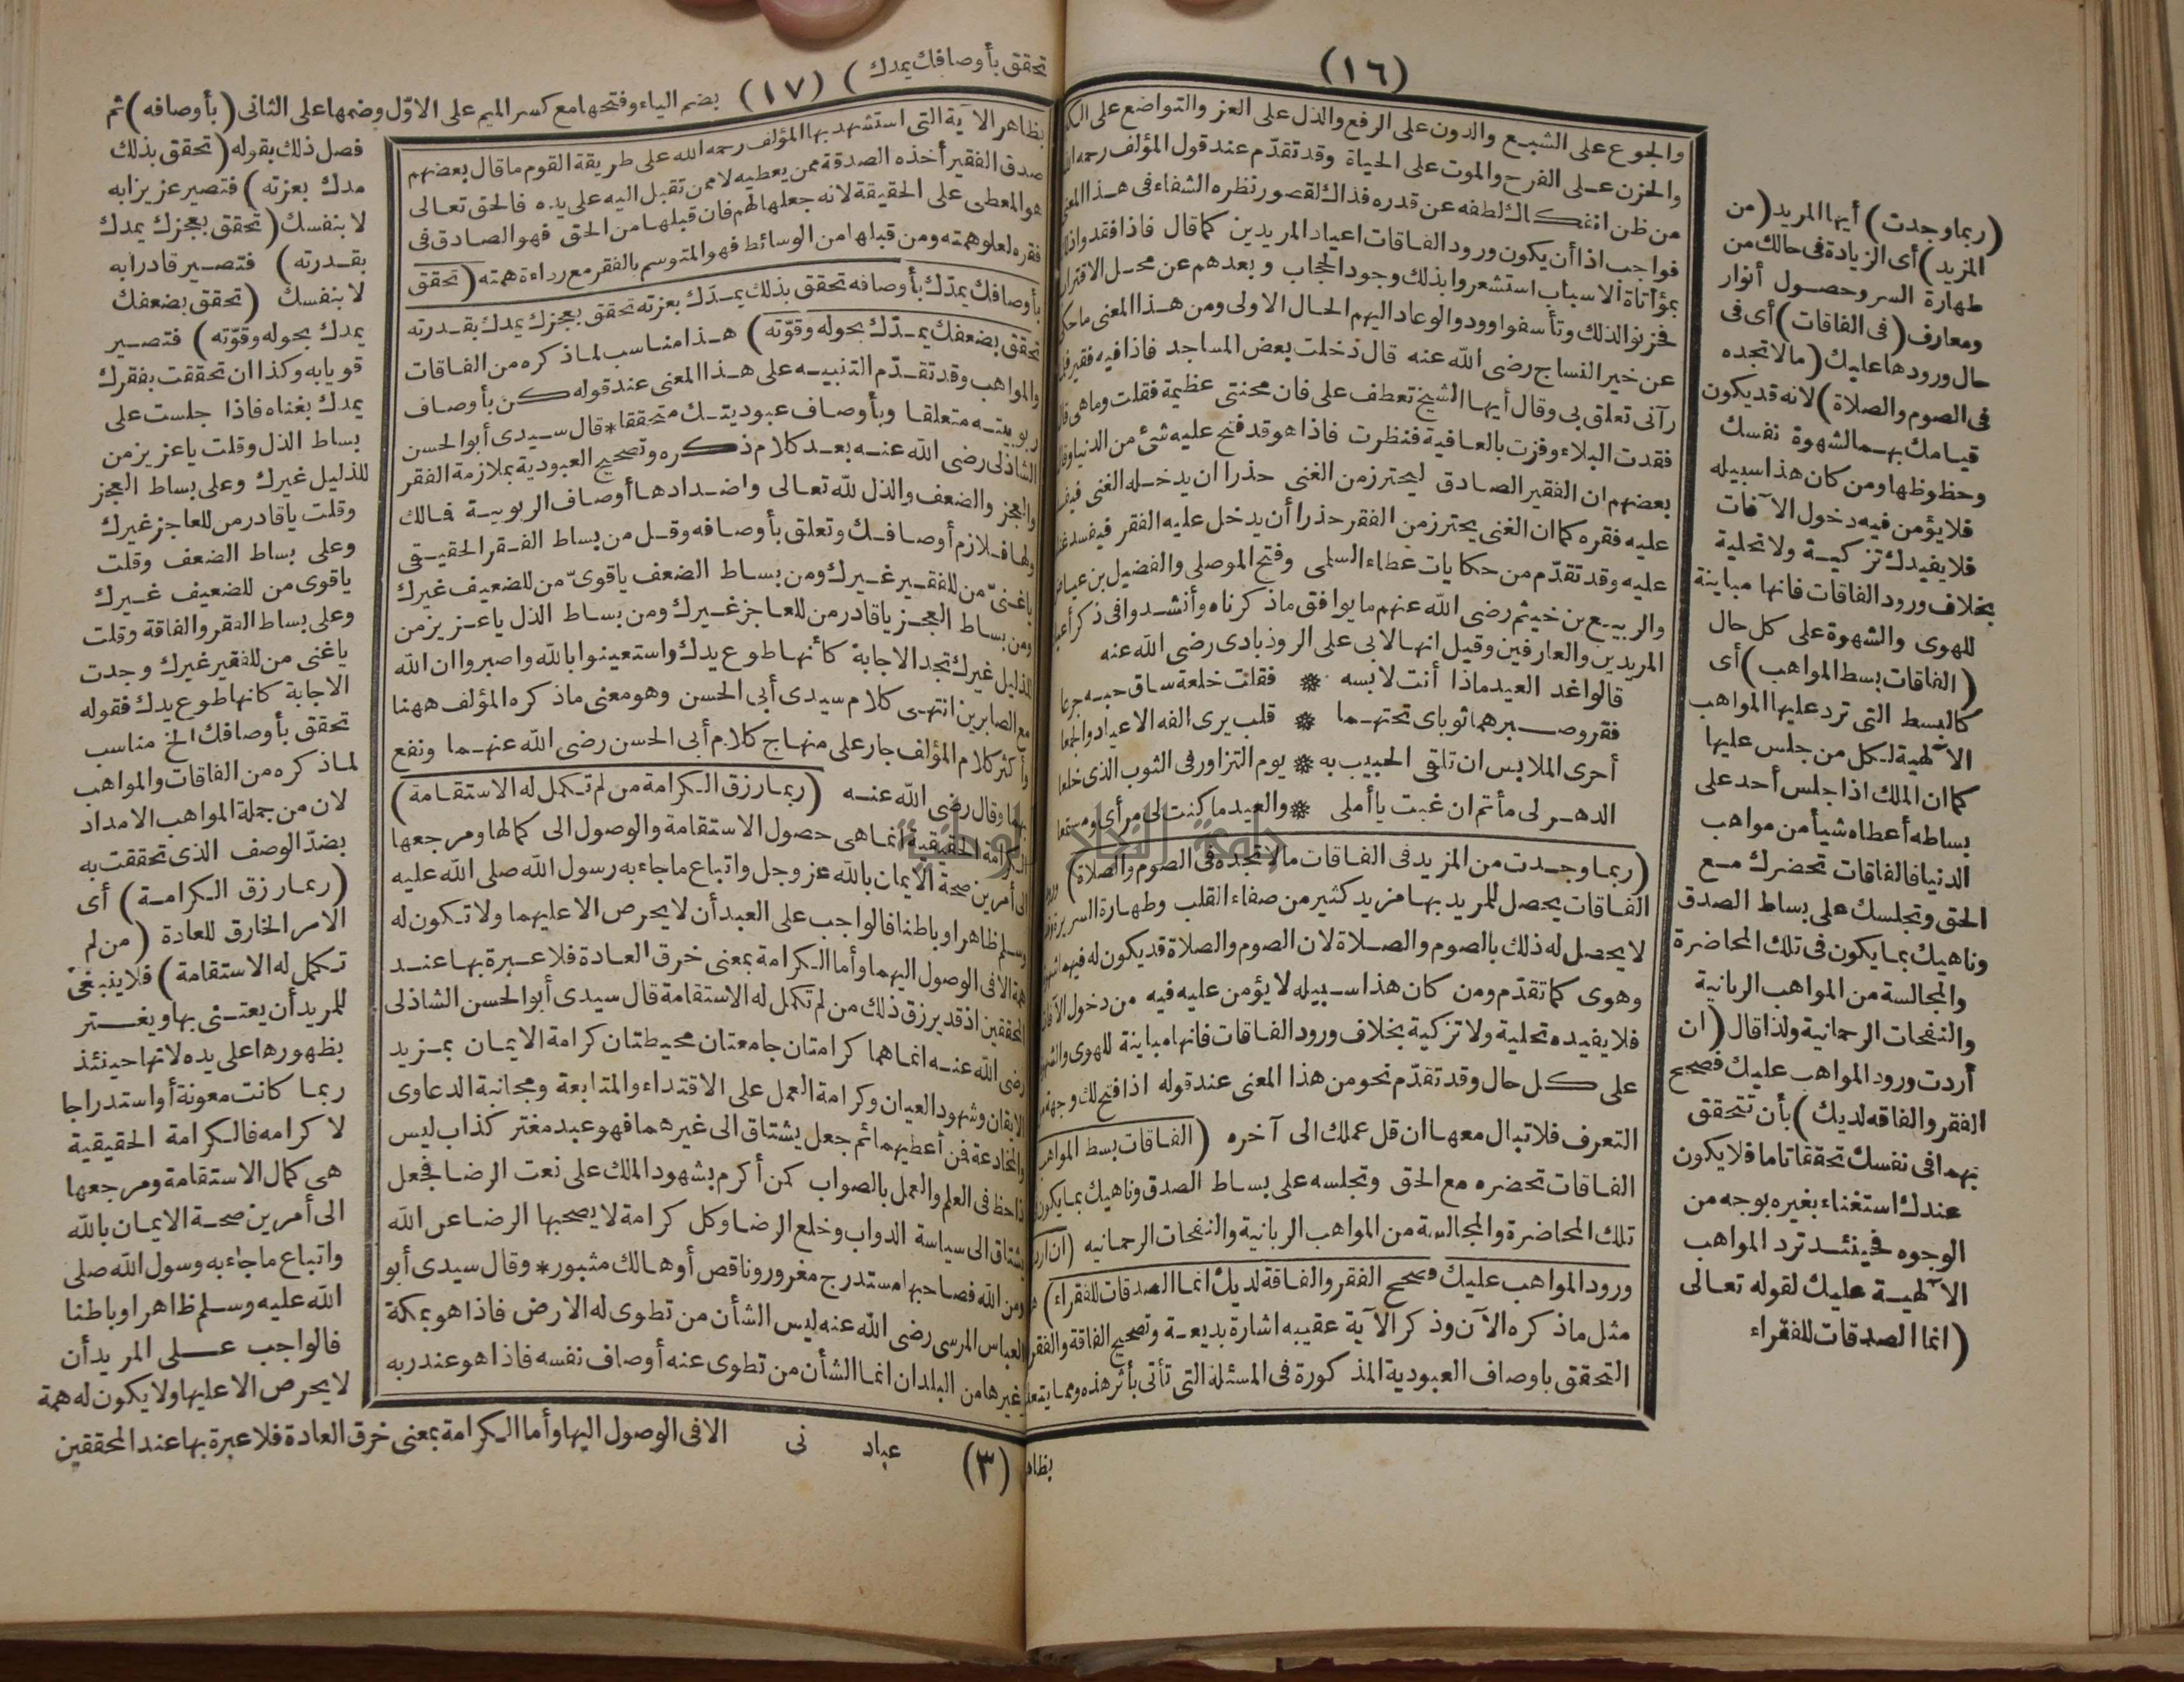 (١٦)
والجوع على الشبع والدون على الرفع والذل على العز والتواضع على
والحزن على الفرح والموت على الحياة وقد تقدّم عند قول المؤلف رحمه الله
من ظن انفكاك لطفه عن قدره فذاك لقصور نظره الشفاء فى هذا المعنى
فواجب اذا أن يكون ورود الفاقات اعياد المريدين كما قال فاذا فقدوا ذلك
بمؤاتاة الاسباب استشعروا بذلك وجود الحجاب وبعدهم عن محل الاقتراب
فحزنوا لذلك وتأسفوا وودوا لو عاد اليهم الحال الاولى ومن هذا المعنى ما حكى
عن خير النساج رضى الله عنه قال دخلت بعض المساجد فاذا فيه فقير فلما
رآنى تعلق بى وقال أيها الشيخ تعطف على فان محنتى عظيمة فقلت وما هى قال
فقدت البلاء وفزت بالعافية فنظرت فاذا هو قد فتح عليه شئ من الدنيا وقال
بعضهم ان الفقير الصادق ليحترز من الغنى حذرا ان يدخله الغنى فيفسد
عليه فقره كما ان الغنى يحترز من الفقر حذرا أن يدخل عليه الفقر فيفسد غناه
عليه وقد تقدّم من حكايات عطاء السلمى وفتح الموصلى والفضيل بن عياض
والربيع بن خيثم رضى الله عنهم ما يوافق ما ذكرناه وأنشدوا فى ذكر أعياد
المريدين والعارفين وقيل انها لابى على الروذبادى رضى الله عنه
قالوا غد العيد ماذا أنت لابسه * فقلت خلعة ساق حبه جرعا
فقر وصبر هما ثوباى تحتهما * قلب يرى الفه الاعياد والجمعا
أحرى الملابس ان تلقى الحبيب به * يوم التزاور فى الثوب الذى خلعا
الدهر لى مأتم ان غبت يا أملى * والعيد ما كنت لى مرأى ومستمعا
(ربما وجدت من المزيد فى الفاقات ما لا تجده فى الصوم والصلاة) ورود
الفاقات يحصل للمريد بها مزيد كثير من صفاء القلب وطهارة السريرة
لا يحصل له ذلك بالصوم والصلاة لان الصوم والصلاة قد يكون له فيهما شهوة
وهوى كما تقدّم ومن كان هذا سبيله لا يؤمن عليه فيه من دخول الآفات
فلا يفيده تحلية ولا تزكية بخلاف ورود الفاقات فانها مباينة للهوى والشهوة
على كل حال وقد تقدّم نحو من هذا المعنى عند قوله اذا فتح لك وجهة من
التعرف فلا تبال معها ان قل عملك الى آخره (الفاقات بسط المواهب)
الفاقات تحضره مع الحق وتجلسه على بساط الصدق وناهيك بما يكون
تلك المحاضرة والمجالسة من المواهب الربانية والنفحات الرحمانيه (ان اردت
ورود المواهب عليك وصحح الفقر والفاقة لديك انما الصدقات للفقراء)
مثل ما ذكره الآن وذكر الآية عقيبه اشارة بديعة وتصحيح الفاقة والفقر
التحقق باوصاف العبودية المذكورة فى المسئلة التى تأتى بأثر هذه ومما يتعلق
بظاهر
(ربما وجدت) أيها المريد (من
المزيد) أى الزيادة فى حالك من
طهارة السر وحصول أنوار
ومعارف (فى الفاقات) أى فى
حال ورودها عليك (ما لا تجده
فى الصوم والصلاة) لانه قد يكون
قيامك بهما لشهوة نفسك
وحظوظها ومن كان هذا سبيله
فلا يؤمن فيه دخول الآفات
فلا يفيدك تزكية ولا تحلية
بخلاف ورود الفاقات فانها مباينة
للهوى والشهوة على كل حال
(الفاقات بسط المواهب) أى
كالبسط التى ترد عليها المواهب
الالٓهية لكل من جلس عليها
كما ان الملك اذا جلس أحد على
بساطه أعطاه شيأ من مواهب
الدنيا فالفاقات تحضرك مع
الحق وتجلسك على بساط الصدق
وناهيك بما يكون فى تلك المحاضرة
والمجالسة من المواهب الربانية
والنفحات الرحمانية ولذا قال (ان
أردت ورود المواهب عليك فصحح
الفقر والفاقه لديك) بأن تتحقق
بهما فى نفسك تحققا تاما فلا يكون
عندك استغناء بغيره بوجه من
الوجوه فحينئذ ترد المواهب
الالٓهية عليك لقوله تعالى
(انما الصدقات للفقراء
تحقق بأوصافك يمدك) (١٧) بضم الياء وفتحها مع كسر الميم على الاوّل وضمها على الثانى (بأوصافه) ثم
بظاهر الآية التى استشهد بها المؤلف رحمه الله على طريقة القوم ما قال بعضهم
صدق الفقير أخذه الصدقة ممن يعطيه لا ممن تقبل اليه على يده فالحق تعالى
هو المعطى على الحقيقة لانه جعلها لهم فان قبلها من الحق فهو الصادق فى
فقره لعلو همته ومن قبلها من الوسائط فهو المتوسم بالفقر مع رداءة همته (تحقق
بأوصافك يمدّك بأوصافه تحقق بذلك يمدّك بعزته تحقق بعجزك يمدك بقدرته
تحقق بضعفك يمدّك بحوله وقوّته) هذا مناسب لما ذكره من الفاقات
والمواهب وقد تقدّم التنبيه على هذا المعنى عند قوله كن بأوصاف
ربوبيته متعلقا وبأوصاف عبوديتك متحققا * قال سيدى أبو الحسن
الشاذلى رضى الله عنه بعد كلام ذكره وتصحيح العبودية بملازمة الفقر
والعجز والضعف والذل لله تعالى واضدادها أوصاف الربوبية فمالك
ولها فلازم أوصافك وتعلق بأوصافه وقل من بساط الفقر الحقيقى
يا غنىّ من للفقير غيرك ومن بساط الضعف يا قوىّ من للضعيف غيرك
ومن بساط العجز يا قادر من للعاجز غيرك ومن بساط الذل يا عزيز من
للذليل غيرك تجد الاجابة كأنها طوع يدك واستعينوا بالله واصبروا ان الله
مع الصابرين انتهى كلام سيدى أبى الحسن وهو معنى ما ذكره المؤلف ههنا
وأكثر كلام المؤلف جار على منهاج كلام أبى الحسن رضى الله عنهما ونفع
بهما وقال رضى الله عنه (ربما رزق الكرامة من لم تكمل له الاستقامة)
الكرامة الحقيقية انما هى حصول الاستقامة والوصول الى كمالها ومرجعها
الى أمرين صحة الايمان بالله عز وجل واتباع ما جاء به رسول الله صلى الله عليه
وسلم ظاهرا وباطنا فالواجب على العبد أن لا يحرص الا عليهما ولا تكون له
همة الا فى الوصول اليهما وأما الكرامة بمعنى خرق العادة فلا عبرة بها عند
المحققين اذ قد يرزق ذلك من لم تكمل له الاستقامة قال سيدى أبو الحسن الشاذلى
رضى الله عنه انما هما كرامتان جامعتان محيطتان كرامة الايمان بمزيد
الايقان وشهود العيان وكرامة العمل على الاقتداء والمتابعة ومجانبة الدعاوى
والمخادعة فمن أعطيهما ثم جعل يشتاق الى غيرهما فهو عبد مغتر كذاب ليس
ذا حظ فى العلم والعمل بالصواب كمن أكرم بشهود الملك على نعت الرضا فجعل
يشتاق الى سياسة الدواب وخلع الرضا وكل كرامة لا يصحبها الرضا عن الله
ومن الله فصاحبها مستدرج مغرور وناقص أو هالك مثبور * وقال سيدى أبو
العباس المرسى رضى الله عنه ليس الشأن من تطوى له الارض فاذا هو بمكة
غيرها من البلدان انما الشأن من تطوى عنه أوصاف نفسه فاذا هو عند ربه
فصل ذلك بقوله (تحقق بذلك
مدك بعزته) فتصير عزيزا به
لا بنفسك (تحقق بعجزك يمدك
بقدرته) فتصير قادرا به
لا بنفسك (تحقق بضعفك
يمدك بحوله وقوّته) فتصير
قويا به وكذا ان تحققت بفقرك
يمدك بغناه فاذا جلست على
بساط الذل وقلت يا عزيز من
للذليل غيرك وعلى بساط العجز
وقلت يا قادر من للعاجز غيرك
وعلى بساط الضعف وقلت
يا قوى من للضعيف غيرك
وعلى بساط الفقر والفاقة وقلت
يا غنى من للفقير غيرك وجدت
الاجابة كانها طوع يدك فقوله
تحقق بأوصافك الخ مناسب
لما ذكره من الفاقات والمواهب
لان من جملة المواهب الامداد
بضدّ الوصف الذى تحققت به
(ربما رزق الكرامة) أى
الامر الخارق للعادة (من لم
تكمل له الاستقامة) فلا ينبغى
للمريد أن يعتنى بها ويغتر
بظهورها على يده لانها حينئذ
ربما كانت معونة أو استدراجا
لا كرامه فالكرامة الحقيقية
هى كمال الاستقامة ومرجعها
الى أمرين صحة الايمان بالله
واتباع ما جاء به وسول الله صلى
الله عليه وسلم ظاهرا وباطنا
فالواجب على المريد أن
لا يحرص الا عليها ولا يكون له همة
الا فى الوصول اليها وأما الكرامة بمعنى خرق العادة فلا عبرة بها عند المحققين
(٣) عباد نى